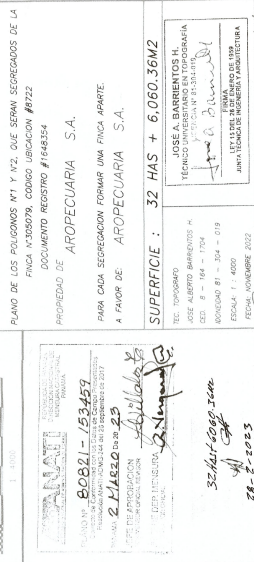 PLANO DE LOS POLIGONOS N°1 Y N°2, QUE SERAN SEGREGADOS DE LA
FINCA N°305079, CODIGO UBICACION #8722
DOCUMENTO REGISTRO #1648354
PROPIEDAD DE AROPECUARIA S.A.
PARA CADA SEGREGACION FORMAR UNA FINCA APARTE.
A FAVOR DE: AROPECUARIA S.A.
SUPERFICIE : 32 HAS + 6,060.36M2
TEC. TOPOGRAFO
JOSE ALBERTO BARRIENTOS H.
CED. 8 - 184 - 1704
IDONEIDAD 81 - 304 - 019
ESCALA: 1 : 4000
FECHA: NOVIEMBRE 2022
JOSÉ A. BARRIENTOS H.
TÉCNICO UNIVERSITARIO EN TOPOGRAFÍA
LICENCIA N° 81-304-019
FIRMA
LEY 15 DEL 26 DE ENERO DE 1959
JUNTA TÉCNICA DE INGENIERÍA Y ARQUITECTURA
1 : 4000
ANATI
PANAMA
PLANO N° 80821-153459
PANAMA 2 MARZO De 20 23
DE APROBACION
DEP. MENSURA
32 Has + 6060.36m2
28-2-2023